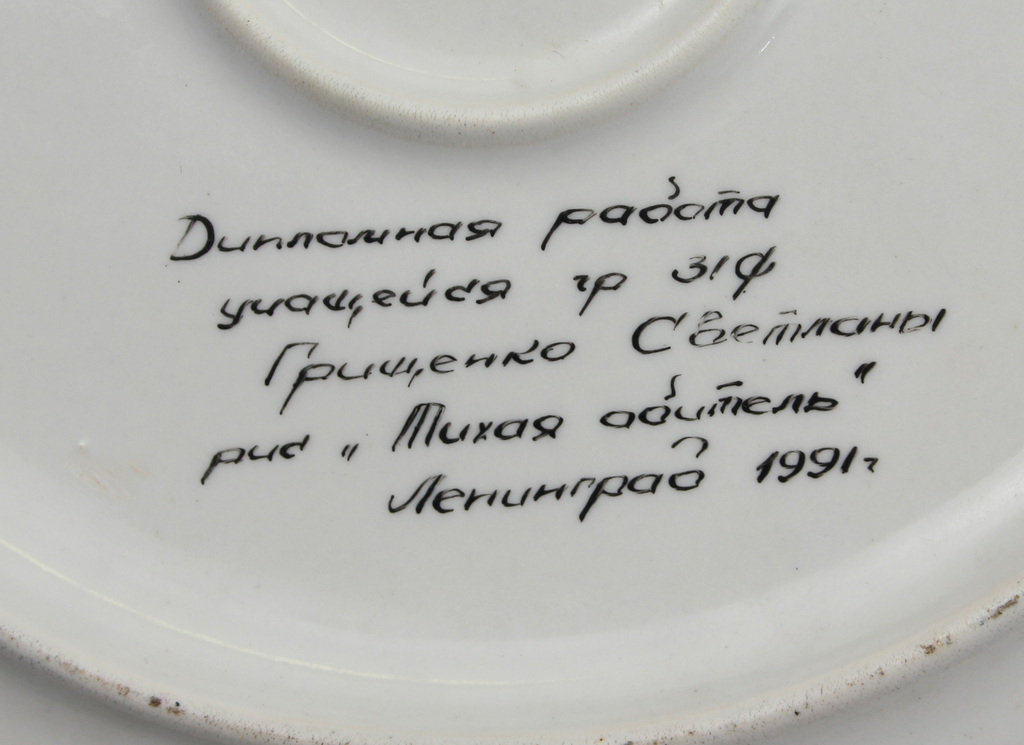 Дипломная работа
учащейся гр 31ф
Грищенко Светланы
рис „Тихая обитель"
Ленинград 1991г